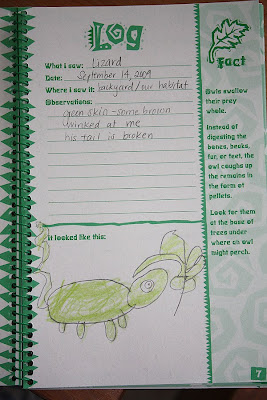 Log
What I saw: Lizard
Date: September 14, 2009
Where I saw it: backyard/our habitat
Observations:
green skin - some brown
winked at me
his tail is broken
It looked like this:
Fact
Owls swallow
their prey
whole.
Instead of
digesting the
bones, beaks,
fur, or feet, the
owl coughs up
the remains in
the form of
pellets.
Look for them
at the base of
trees under
where an owl
might perch.
7